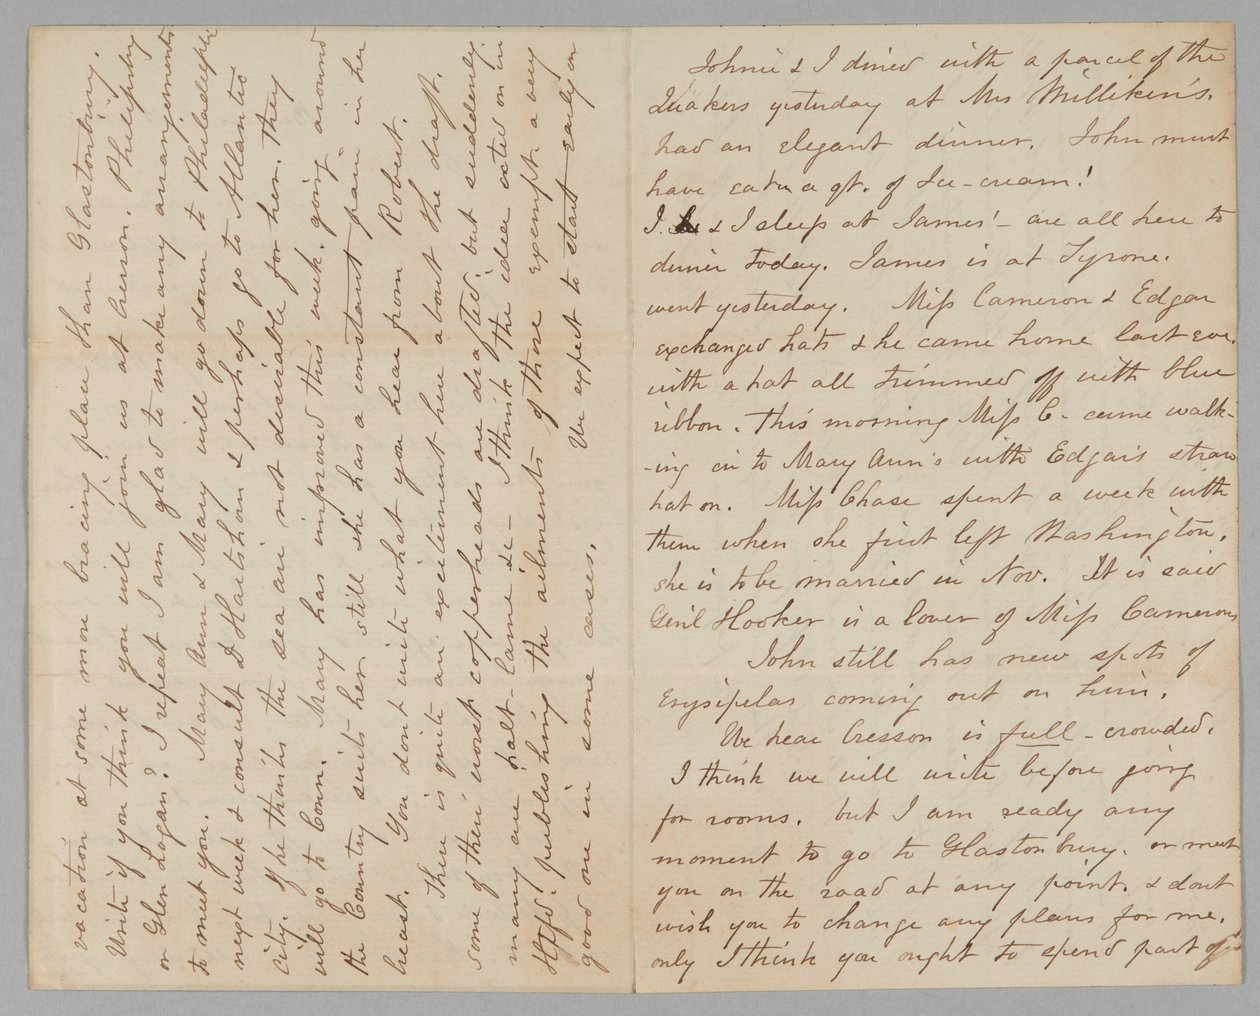 Johnie & I dined with a parcel of the
Quakers yesterday at Mrs Milliken's.
had an elegant dinner. John must
have eaten a qt. of Ice-cream!
I. & I sleep at James' - are all here to
dinner today. James is at Tyrone.
went yesterday. Miss Cameron & Edgar
exchanged hats & he came home last eve.
with a hat all trimmed off with blue
ribbon. This morning Miss C- came walk-
-ing in to Mary Ann's with Edgar's straw
hat on. Miss Chase spent a week with
them when she first left Washington.
she is to be married in Nov. It is said
Gen'l Hooker is a lover of Miss Camerons
John still has new spots of
Erysipelas coming out on him.
We hear Cresson is full - crowded.
I think we will write before going
for rooms. but I am ready any
moment to go to Glastonbury. or meet
you on the road at any point. & dont
wish you to change any plans for me.
only I think you ought to spend part of
vacation at some more bracing place than Glastonbury.
Write if you think you will join us at Cresson. Philipsbg
or Glen Logan? I repeat I am glad to make any arrangements
to meet you. Mary Ann & Mary will go down to Philadelphia
next week & consult D Hartshorn & perhaps go to Atlantic
city. If he thinks the sea air not desirable for her. they
will go to Conn. Mary has improved this week. going around
the Country suits her. still she has a constant pain in her
breast. You don't write what you hear from Robert.
There is quite an excitement here about the draft.
some of their worst copperheads are drafted. but suddenly
many are halt-lame &c - I think the idea acted on in
Htfd. publishing the ailments of those exempt. a very
good one in some cases. We expect to start early on